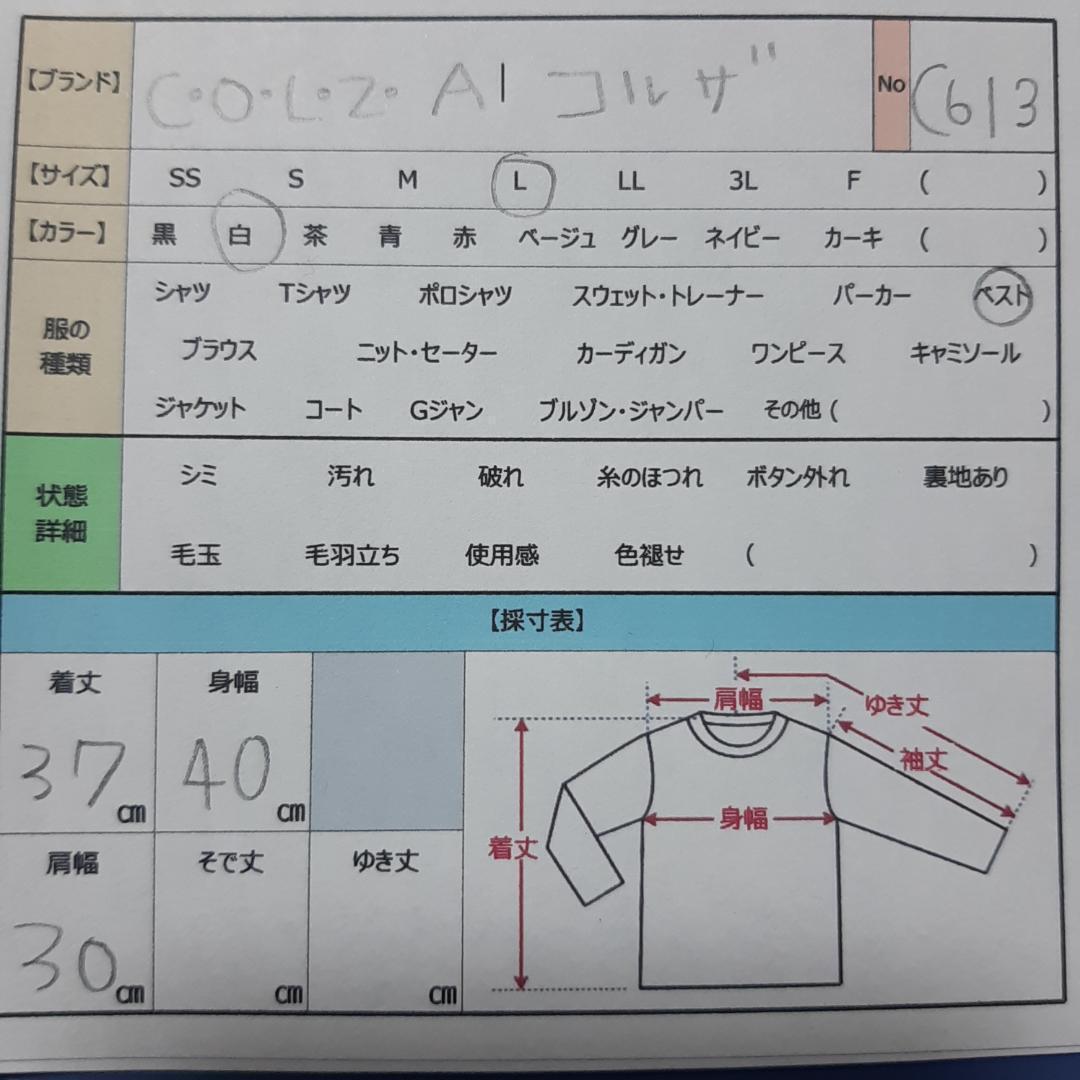 【ブランド】 C・O・L・Z・A| コルザ No C613
【サイズ】 SS S M L LL 3L F ( )
【カラー】 黒 白 茶 青 赤 ベージュ グレー ネイビー カーキ ( )
服の種類
シャツ Tシャツ ポロシャツ スウェット・トレーナー パーカー ベスト
ブラウス ニット・セーター カーディガン ワンピース キャミソール
ジャケット コート Gジャン ブルゾン・ジャンパー その他 ( )
状態詳細
シミ 汚れ 破れ 糸のほつれ ボタン外れ 裏地あり
毛玉 毛羽立ち 使用感 色褪せ ( )
【採寸表】
着丈 身幅
37cm 40cm
肩幅 そで丈 ゆき丈
30cm cm cm
肩幅 ゆき丈
袖丈
身幅
着丈